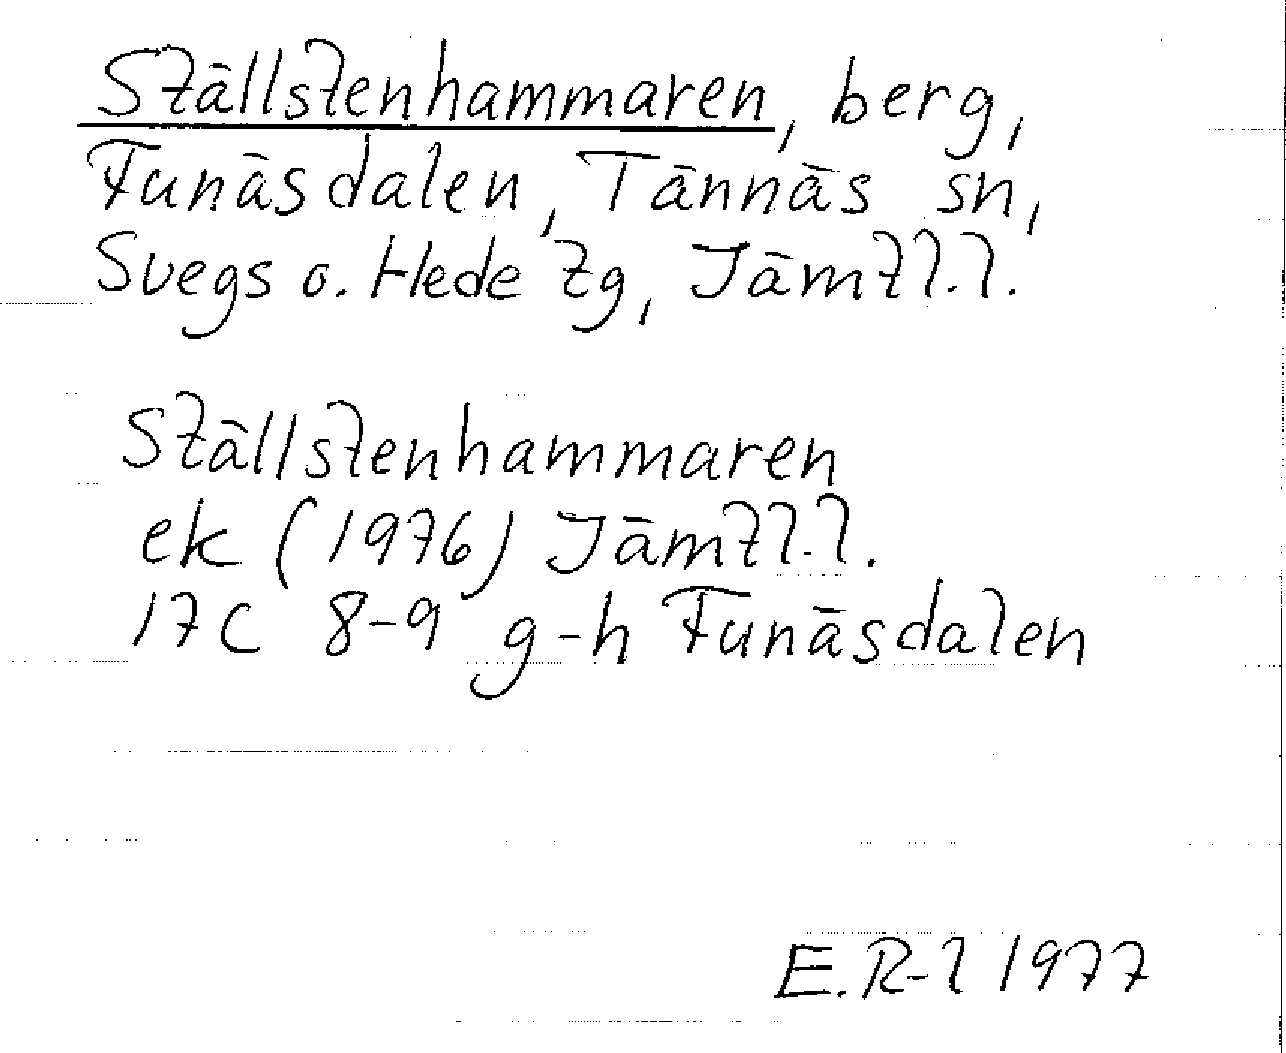 Ställstenhammaren, berg,
Funäsdalen, Tännäs sn,
Svegs o. Hede tg, Jämtl.l.
Ställstenhammaren
ek (1976) Jämtl.l.
17C 8-9 g-h Funäsdalen
E.R-l 1977